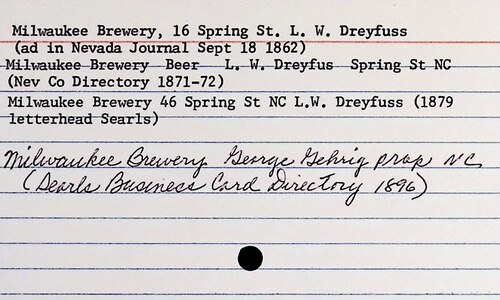 Milwaukee Brewery, 16 Spring St. L. W. Dreyfuss
(ad in Nevada Journal Sept 18 1862)
Milwaukee Brewery Beer L. W. Dreyfus Spring St NC
(Nev Co Directory 1871-72)
Milwaukee Brewery 46 Spring St NC L.W. Dreyfuss (1879
letterhead Searls)
Milwaukee Brewery George Gehrig prop NC
(Searls Business Card Directory 1896)